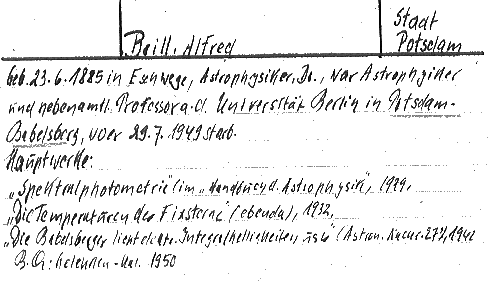 Brill, Alfred
Stadt
Potsdam
geb. 23.6.1885 in Eschwege, Astrophysiker, Dr., war Astrophysiker
und nebenamtl. Professor a. d. Universität Berlin in Potsdam-
Babelsberg, wo er 29.7.1949 starb.
Hauptwerke:
„Spektralphotometrie" (im „Handbuch d. Astrophysik", 1929,
„Die Temperaturen der Fixsterne" (ebenda), 1932,
„Die Babelsberger lichtelektr. Integralhelligkeiten, usw" (Astron. Nachr. 274, 1942
B.Q: Kalender 1950